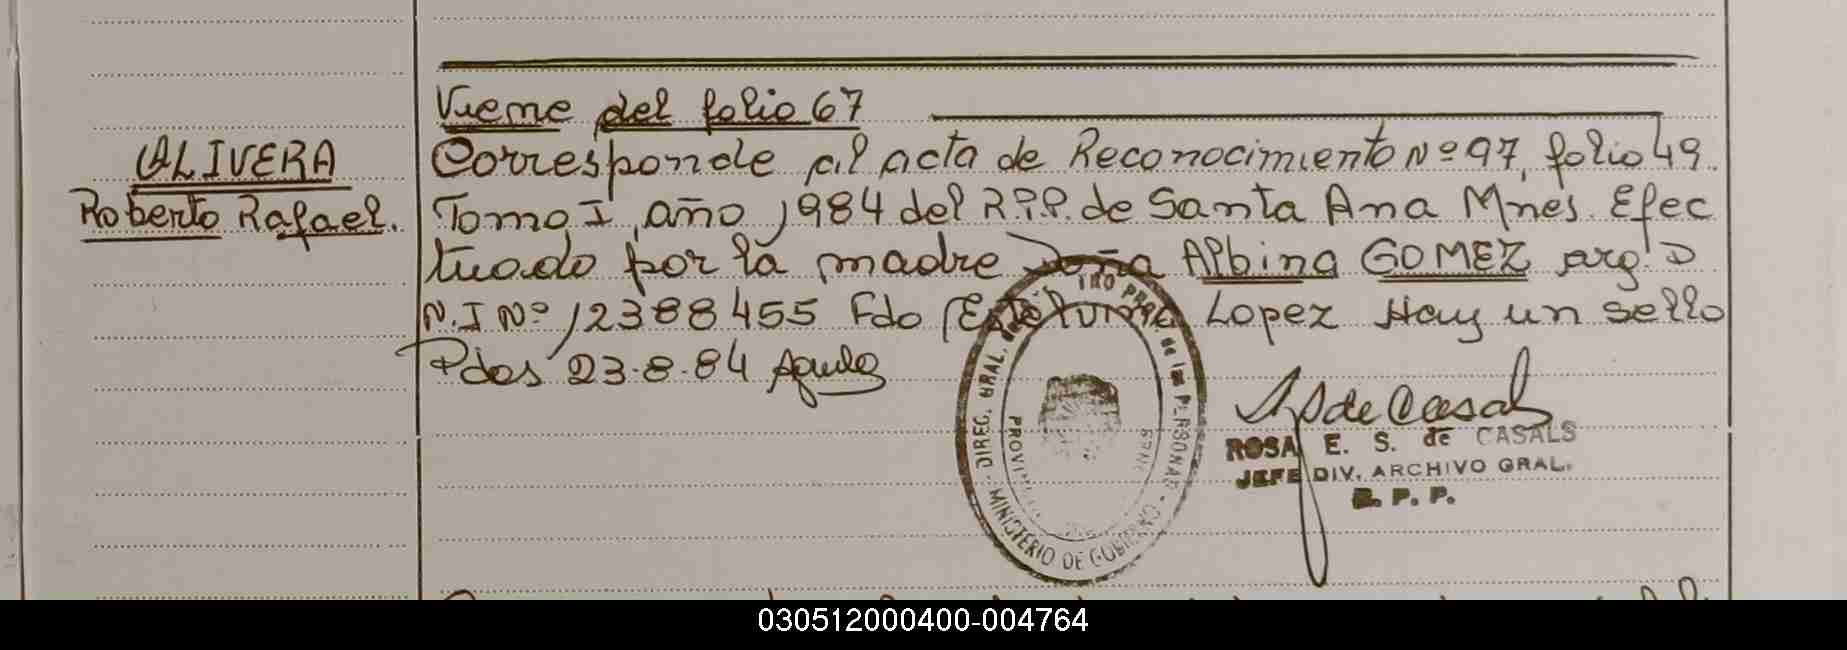 Viene del folio 67
OLIVERA
Roberto Rafael.
Corresponde al acta de Reconocimiento Nº 97, folio 49.
Tomo I, año 1984 del R.P.P. de Santa Ana Mnes. Efec
tuado por la madre Doña Albina GOMEZ arg. D
N.I Nº 12388455 Fdo Lopez Hay un sello
Pdas 23.8.84
DIREC. GRAL. PROV. de las PERSONAS - MINISTERIO DE GOBIERNO
de Casals
ROSA E. S. de CASALS
JEFE DIV. ARCHIVO GRAL.
R. P. P.
030512000400-004764